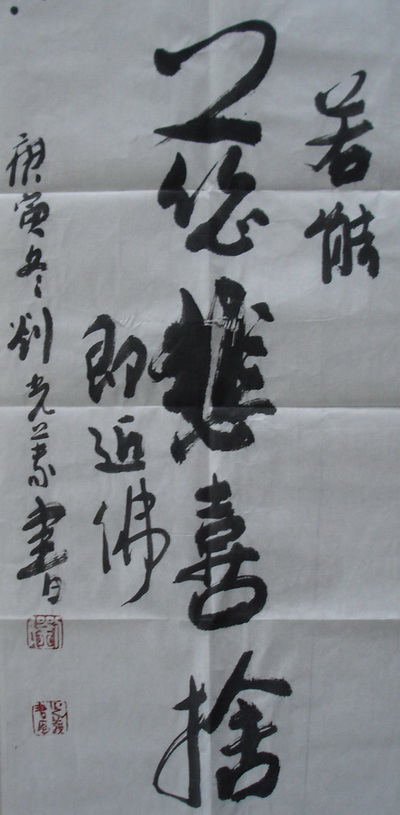 若能
慈悲喜捨
即近佛
庚寅冬刘光義書